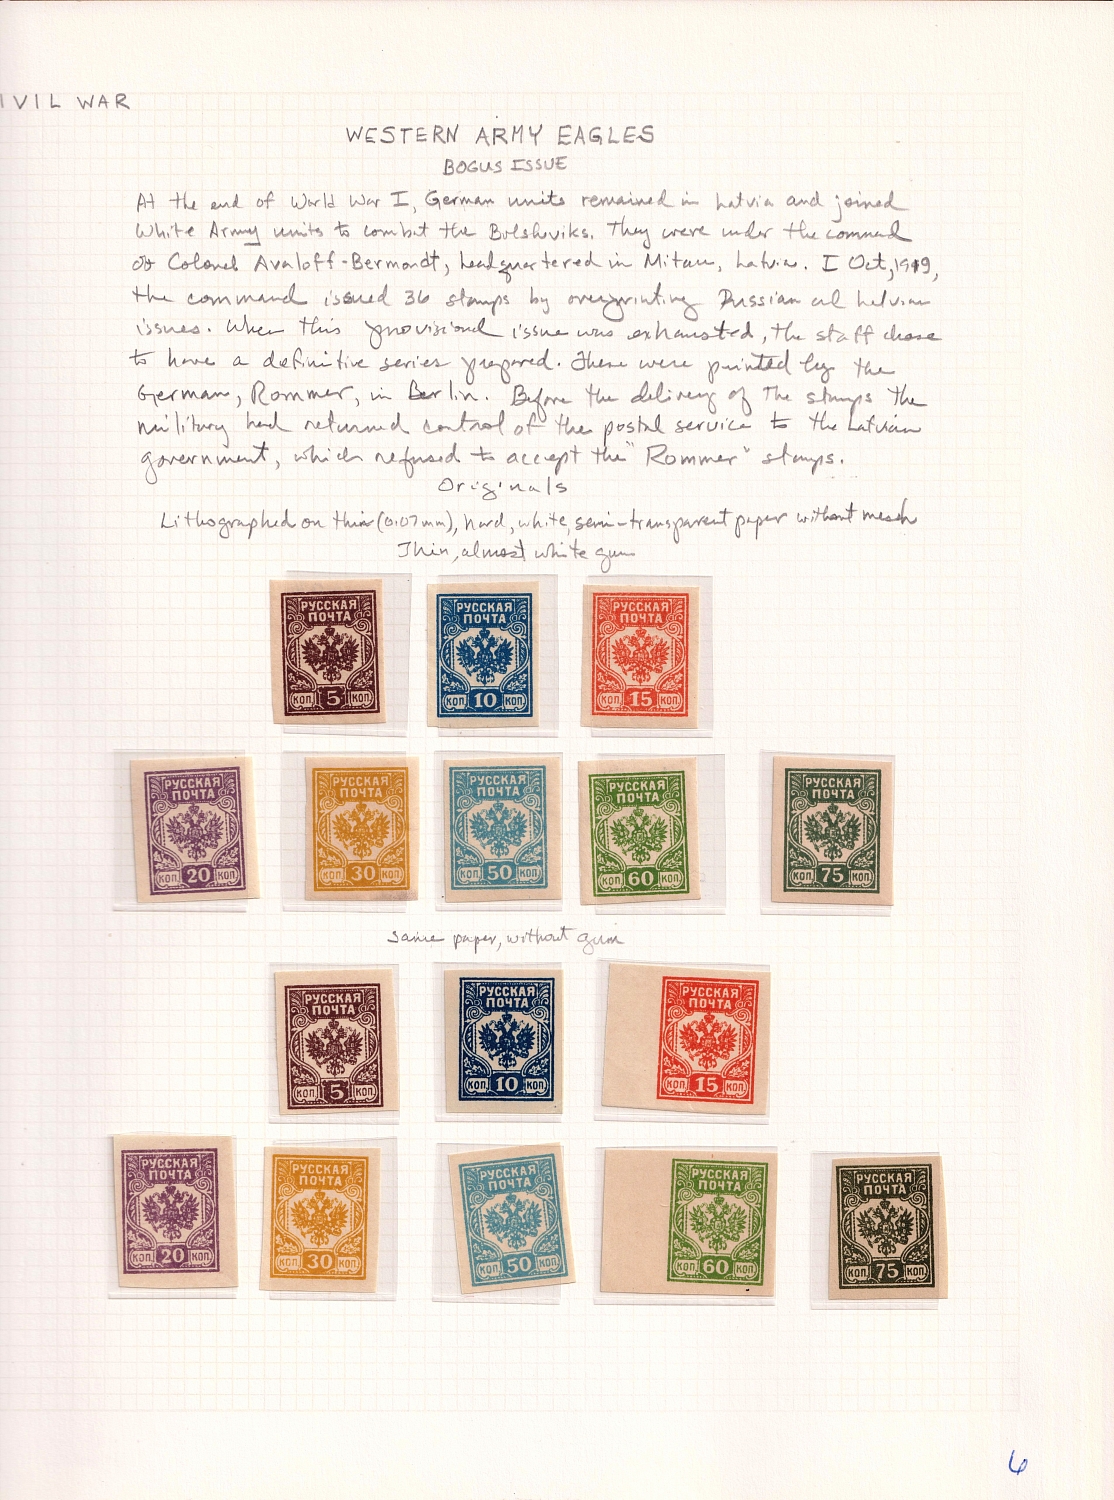 IVIL WAR
WESTERN ARMY EAGLES
BOGUS ISSUE
At the end of World War I, German units remained in Latvia and joined
White Army units to combat the Bolsheviks. They were under the command
of Colonel Avaloff-Bermondt, headquartered in Mitau, Latvia. I Oct, 1919,
the command issued 36 stamps by overprinting Russian and Latvian
issues. When this provisional issue was exhausted, the staff chose
to have a definitive series prepared. These were printed by the
German, Rommer, in Berlin. Before the delivery of the stamps the
military had returned control of the postal service to the Latvian
government, which refused to accept the "Rommer" stamps.
Originals
Lithographed on thin (0.07mm), hard, white, semi-transparent paper without mesh
Thin, almost white gum
РУССКАЯ ПОЧТА КОП. 5 КОП.
РУССКАЯ ПОЧТА КОП. 10 КОП.
РУССКАЯ ПОЧТА КОП. 15 КОП.
РУССКАЯ ПОЧТА КОП. 20 КОП.
РУССКАЯ ПОЧТА КОП. 30 КОП.
РУССКАЯ ПОЧТА КОП. 50 КОП.
РУССКАЯ ПОЧТА КОП. 60 КОП.
РУССКАЯ ПОЧТА КОП. 75 КОП.
Same paper, without gum
РУССКАЯ ПОЧТА КОП. 5 КОП.
РУССКАЯ ПОЧТА КОП. 10 КОП.
РУССКАЯ ПОЧТА КОП. 15 КОП.
РУССКАЯ ПОЧТА КОП. 20 КОП.
РУССКАЯ ПОЧТА КОП. 30 КОП.
РУССКАЯ ПОЧТА КОП. 50 КОП.
РУССКАЯ ПОЧТА КОП. 60 КОП.
РУССКАЯ ПОЧТА КОП. 75 КОП.
6